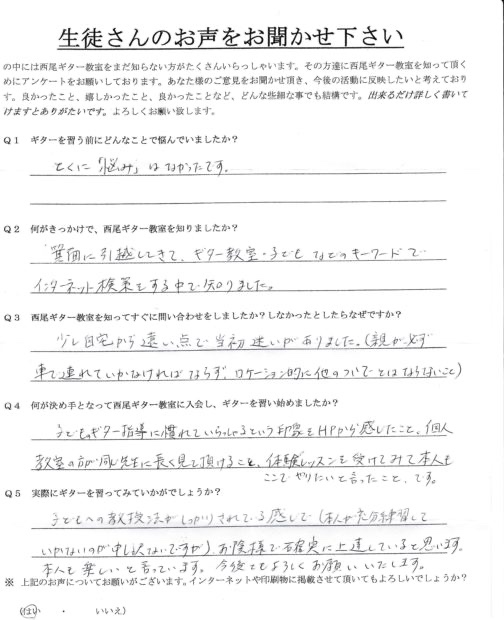 生徒さんのお声をお聞かせ下さい
の中には西尾ギター教室をまだ知らない方がたくさんいらっしゃいます。その方達に西尾ギター教室を知って頂く
めにアンケートをお願いしております。あなた様のご意見をお聞かせ頂き、今後の活動に反映したいと考えており
す。良かったこと、嬉しかったこと、良かったことなど、どんな些細な事でも結構です。出来るだけ詳しく書いて
けますとありがたいです。よろしくお願い致します。
Q1 ギターを習う前にどんなことで悩んでいましたか？
とくに「悩み」はなかったです。
Q2 何がきっかけで、西尾ギター教室を知りましたか？
箕面に引越してきて、ギター教室・子どもなどのキーワードで
インターネット検索をする中で知りました。
Q3 西尾ギター教室を知ってすぐに問い合わせをしましたか？しなかったとしたらなぜですか？
少し自宅から遠い点で当初迷いがありました。（親が必ず
車で連れていかなければならず、ロケーション的に他のついでとはならないこと）
Q4 何が決め手となって西尾ギター教室に入会し、ギターを習い始めましたか？
子どものギター指導に慣れていらっしゃるという印象をHPから感じたこと、個人
教室の方が同じ先生に長く見て頂けること、体験レッスンを受けてみて本人も
ここでやりたいと言ったこと、です。
Q5 実際にギターを習ってみていかがでしょうか？
子どもへの教授法がしっかりされている感じで（本人が充分練習して
いかないのが申し訳ないですが）、お陰様で確実に上達していると思います。
本人も楽しいと言っています。今後ともよろしくお願いいたします。
※ 上記のお声についてお願いがございます。インターネットや印刷物に掲載させて頂いてもよろしいでしょうか？
（はい ・ いいえ）